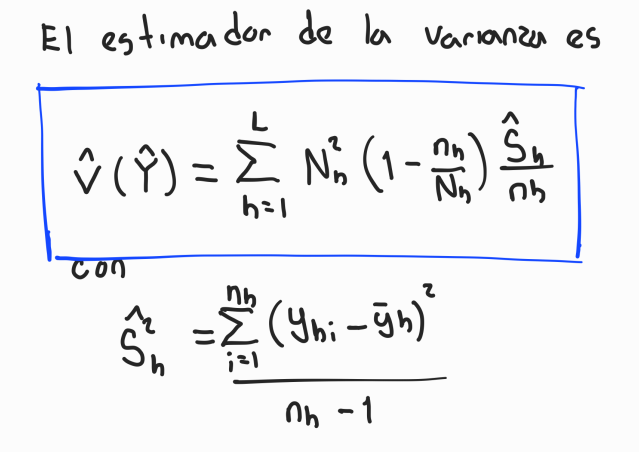 El estimador de la varianza es
V̂(Ŷ) = ∑_{h=1}^{L} N_h^2 (1 - n_h/N_h) Ŝ_h/n_h
con
Ŝ_h^2 = ∑_{i=1}^{n_h} (y_{hi} - ȳ_h)^2 / (n_h - 1)